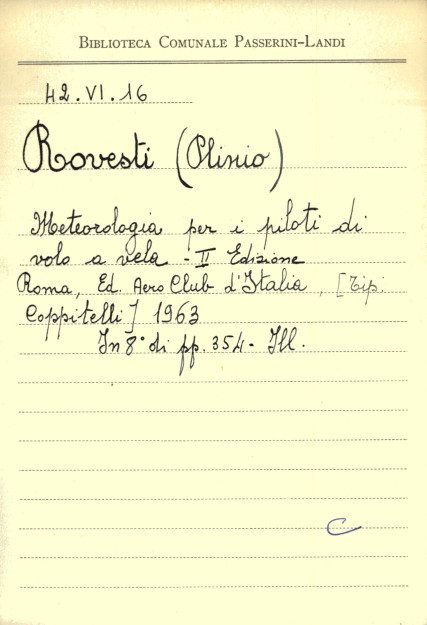 BIBLIOTECA COMUNALE PASSERINI-LANDI
42.VI.16
Rovesti (Plinio)
Meteorologia per i piloti di
volo a vela - II Edizione
Roma, Ed. Aero Club d'Italia, [Tip.
Coppitelli] 1963
In 8° di pp. 354 - Ill.
C